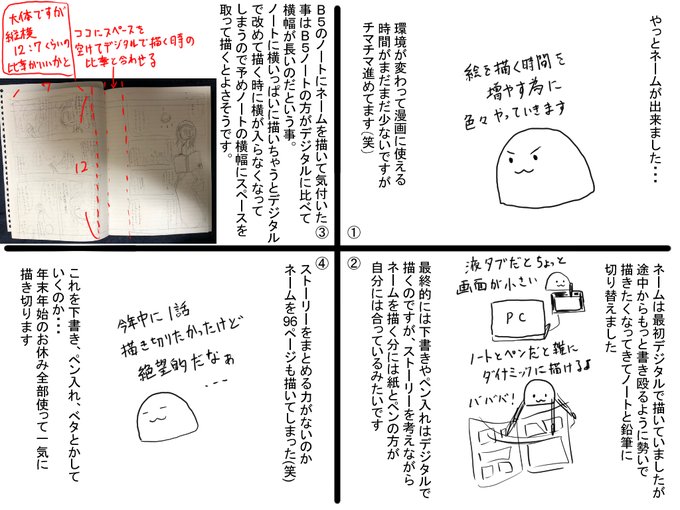 やっとネームが出来ました・・・
絵を描く時間を
増やす為に
色々やっていきます
環境が変わって漫画に使える
時間がまだまだ少ないですが
チマチマ進めてます(笑)
①
ネームは最初デジタルで描いていましたが
途中からもっと書き殴るように勢いで
描きたくなってきてノートと鉛筆に
切り替えました
液タブだとちょっと
画面が小さい
PC
ノートとペンだと雑に
ダイナミックに描ける♪
バババ!
最終的には下書きやペン入れはデジタルで
描くのですが、ストーリーを考えながら
ネームを描く分には紙とペンの方が
自分には合っているみたいです
②
B5のノートにネームを描いて気付いた
事はB5ノートの方がデジタルに比べて
横幅が長いのだという事。
ノートに横いっぱいに描いちゃうとデジタル
で改めて描く時に横が入らなくなって
しまうので予めノートの横幅にスペースを
取って描くとよさそうです。
③
ココにスペースを
空けてデジタルで描く時の
比率と合わせる
大体ですが
縦横
12:7くらいの
比率がいいかと
7
12
ストーリーをまとめる力がないのか
ネームを96ページも描いてしまった(笑)
④
今年中に1話
描き切りたかったけど
絶望的だなぁ
・・・
これを下書き、ペン入れ、ベタとかして
いくのか・・・
年末年始のお休み全部使って一気に
描き切ります